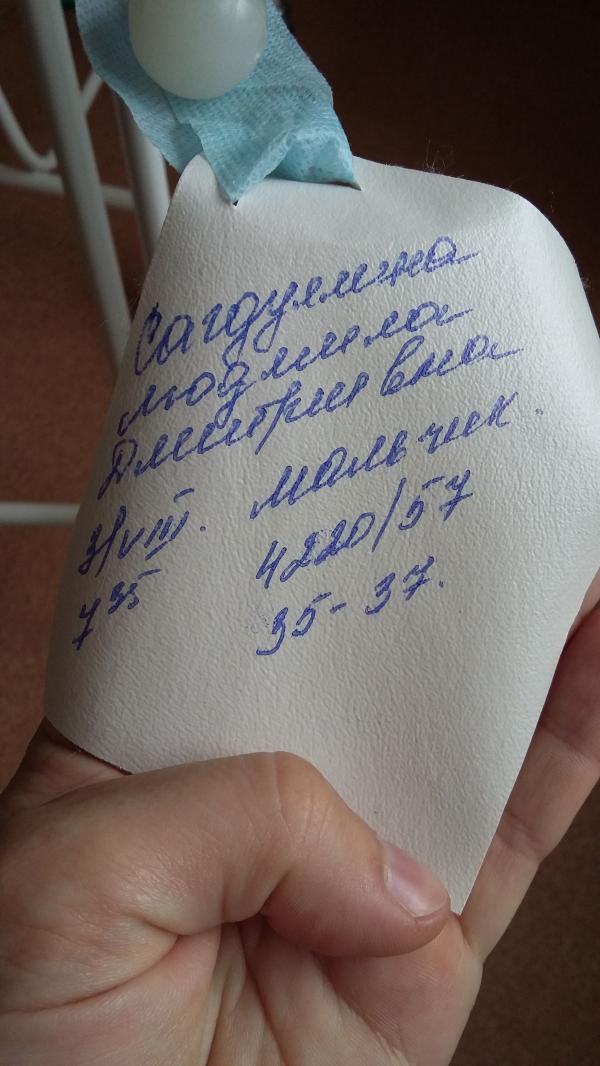 Сагдулина
Людмила
Дмитриевна
31/VIII. мальчик.
7 35 4220/57
35-37.